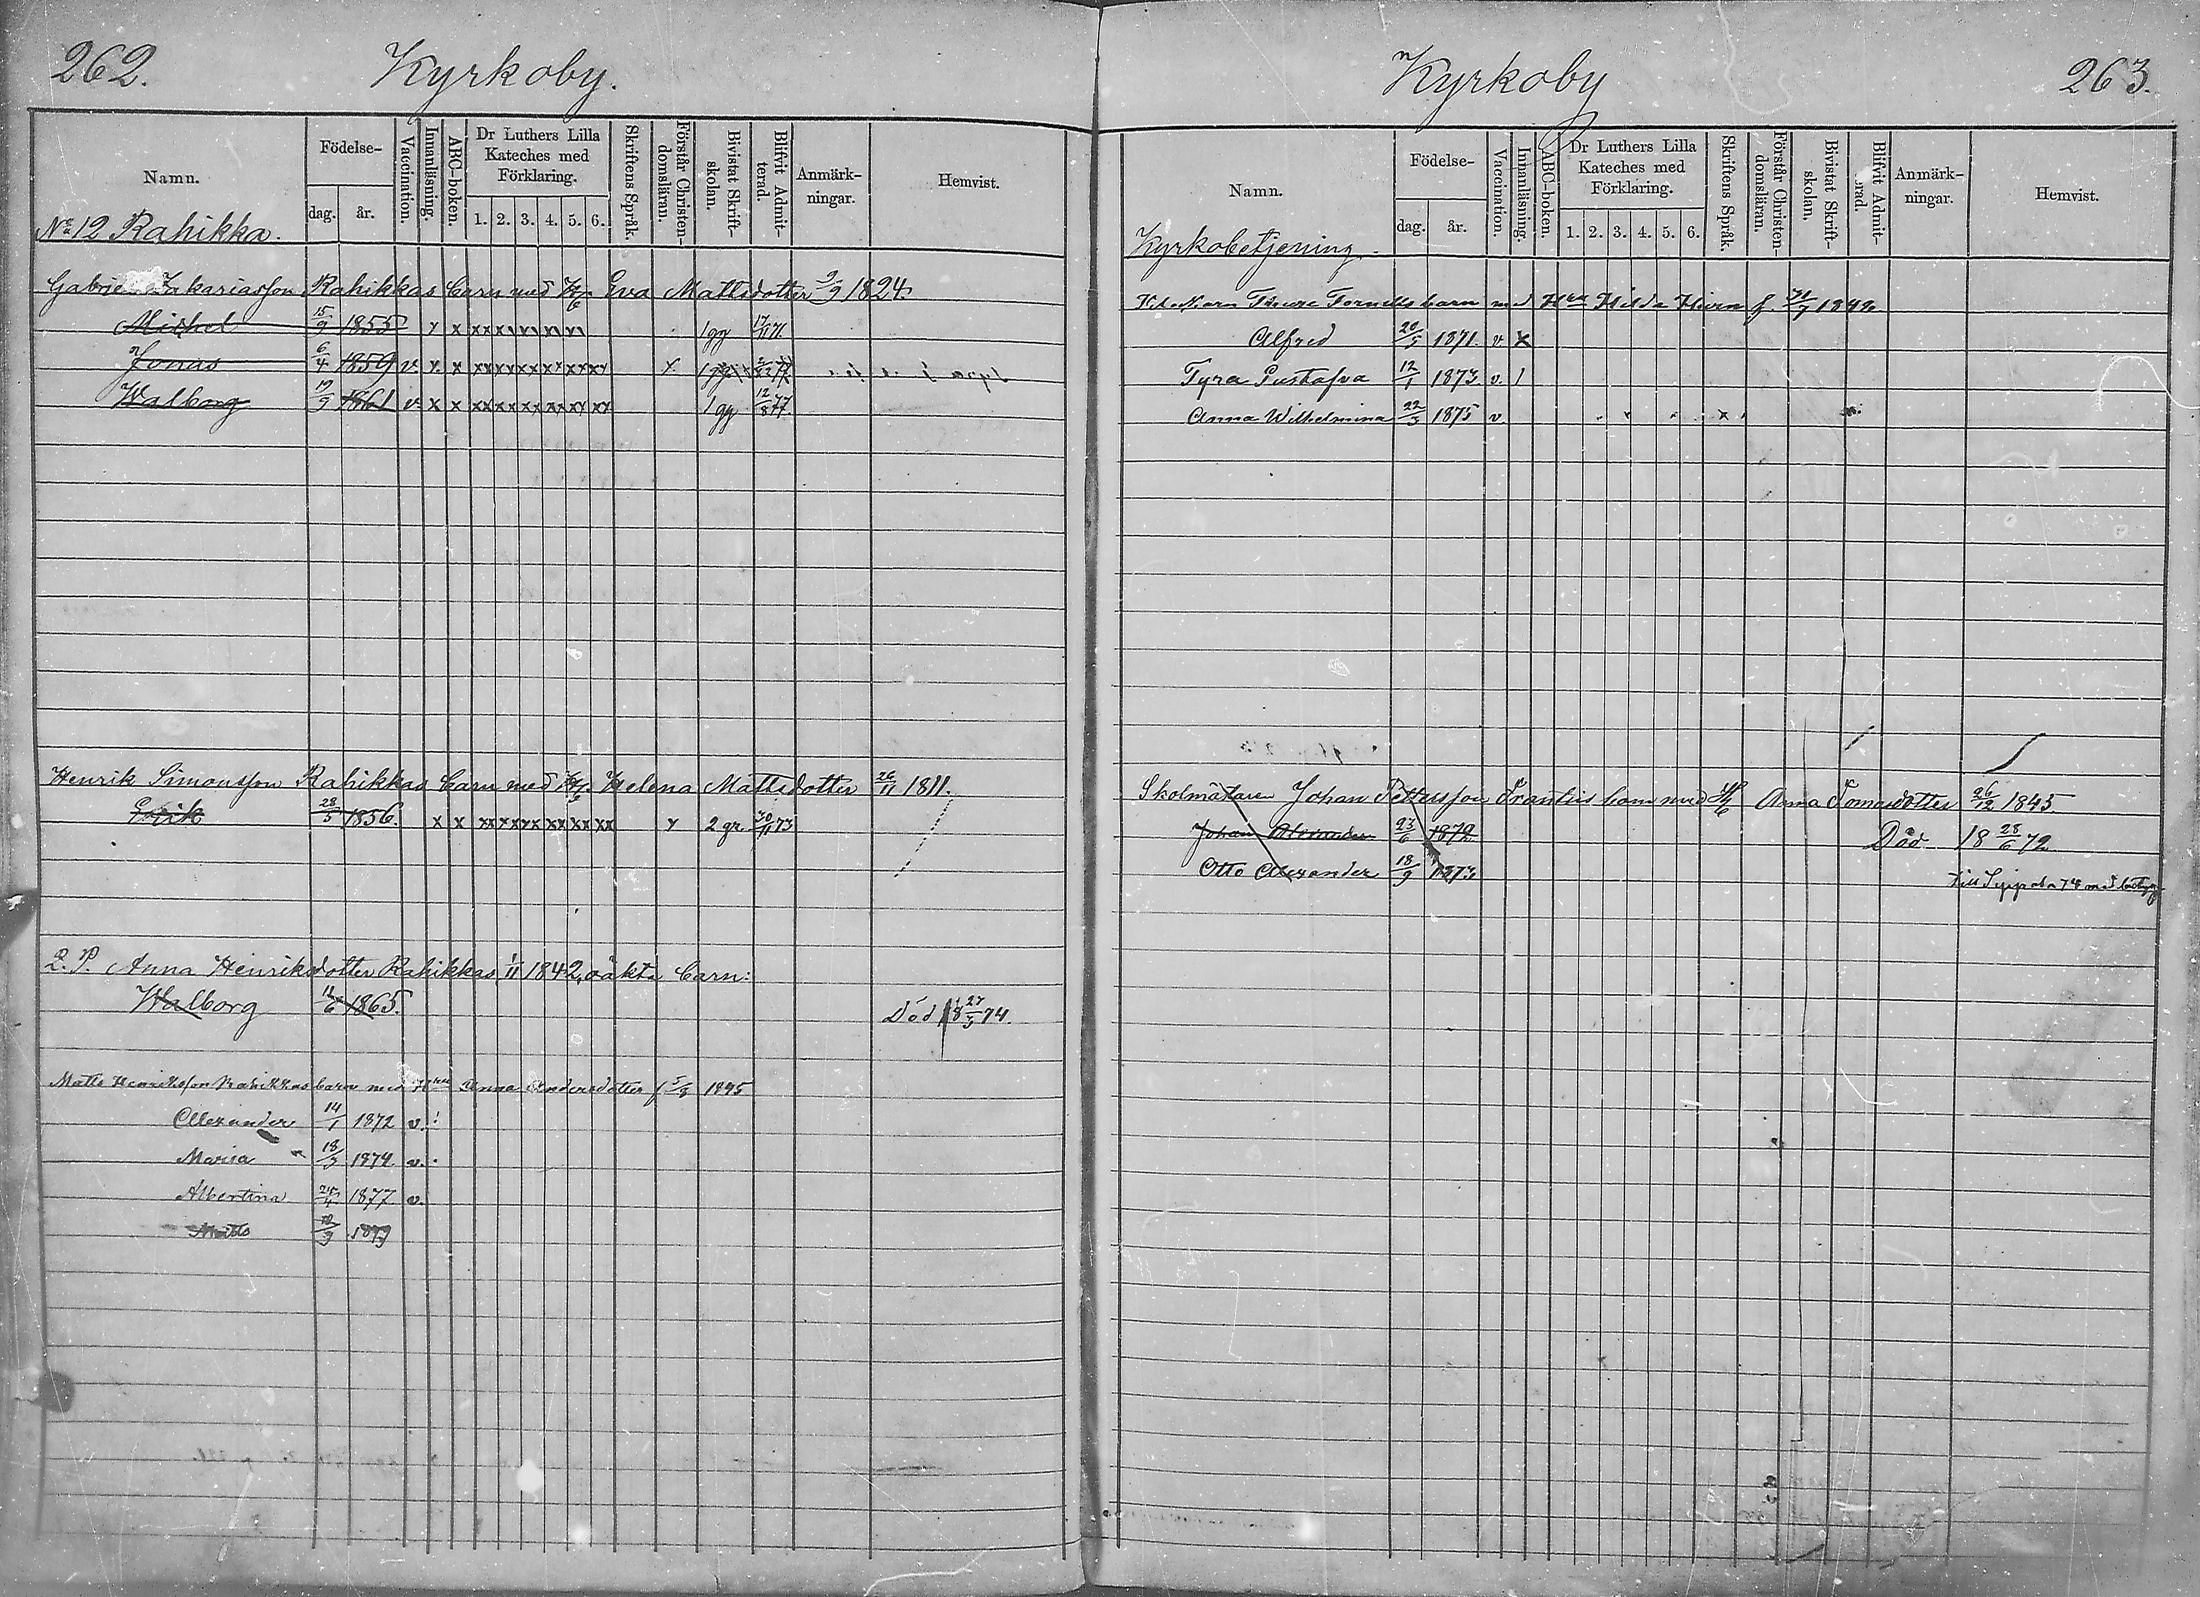 262. Kyrkoby.
Namn. Födelse- dag. år. Vaccination. Innanläsning. ABC-boken. Dr Luthers Lilla Kateches med Förklaring. 1. 2. 3. 4. 5. 6. Skriftens Språk. Förstår Christen-domsläran. Bivistat Skrift-skolan. Blifvit Admit-terad. Anmärk-ningar. Hemvist.
No 12 Rahikka.
Gabriel Zakariasson Rahikkas barn med Eva Mattsdotter 9 1824.
Michel 15/9 1855 x x x x x x x x x 1 gg 17/11 71
Jonas 6/4 1859 v. x x x x x x x x x x x x x x
Walborg 19/9 1861 v. x x x x x x x x x x x x x 1 gg 12/8 77
Henrik Simonsson Rahikkas barn med Helena Mattsdotter 26/11 1811.
Erik 28/5 1856. x x x x x x x x x x x x x x x 2 gr. 30/11 73
Anna Henriksdotter Rahikkas, 1/11 1842, oäkta barn:
Walborg 1865. Död 18 27/3 74.
Matts Henriksson Rahikkas barn med Anna Andersdotter f 1845
Alexander 14/1 1872 v.
Maria 18/3 1874 v.
Albertina 1877 v.
Matts 1879
Kyrkoby 263.
Namn. Födelse- dag. år. Vaccination. Innanläsning. ABC-boken. Dr Luthers Lilla Kateches med Förklaring. 1. 2. 3. 4. 5. 6. Skriftens Språk. Förstår Christen-domsläran. Bivistat Skrift-skolan. Blifvit Admit- Anmärk-ningar. Hemvist.
Kyrkobetjening.
barn med Hilda f.
Alfred 20/5 1871. v x
Tyra Gustafva 12/1 1873 v. 1
Anna Wilhelmina 22/3 1875 v.
Skolmästaren Johan Pettersson barn med Anna Tomasdotter 26/12 1845.
Johan 23/6 1872 Död 18 28/6 72
Otto Alexander 18/9 1873 till 74 med